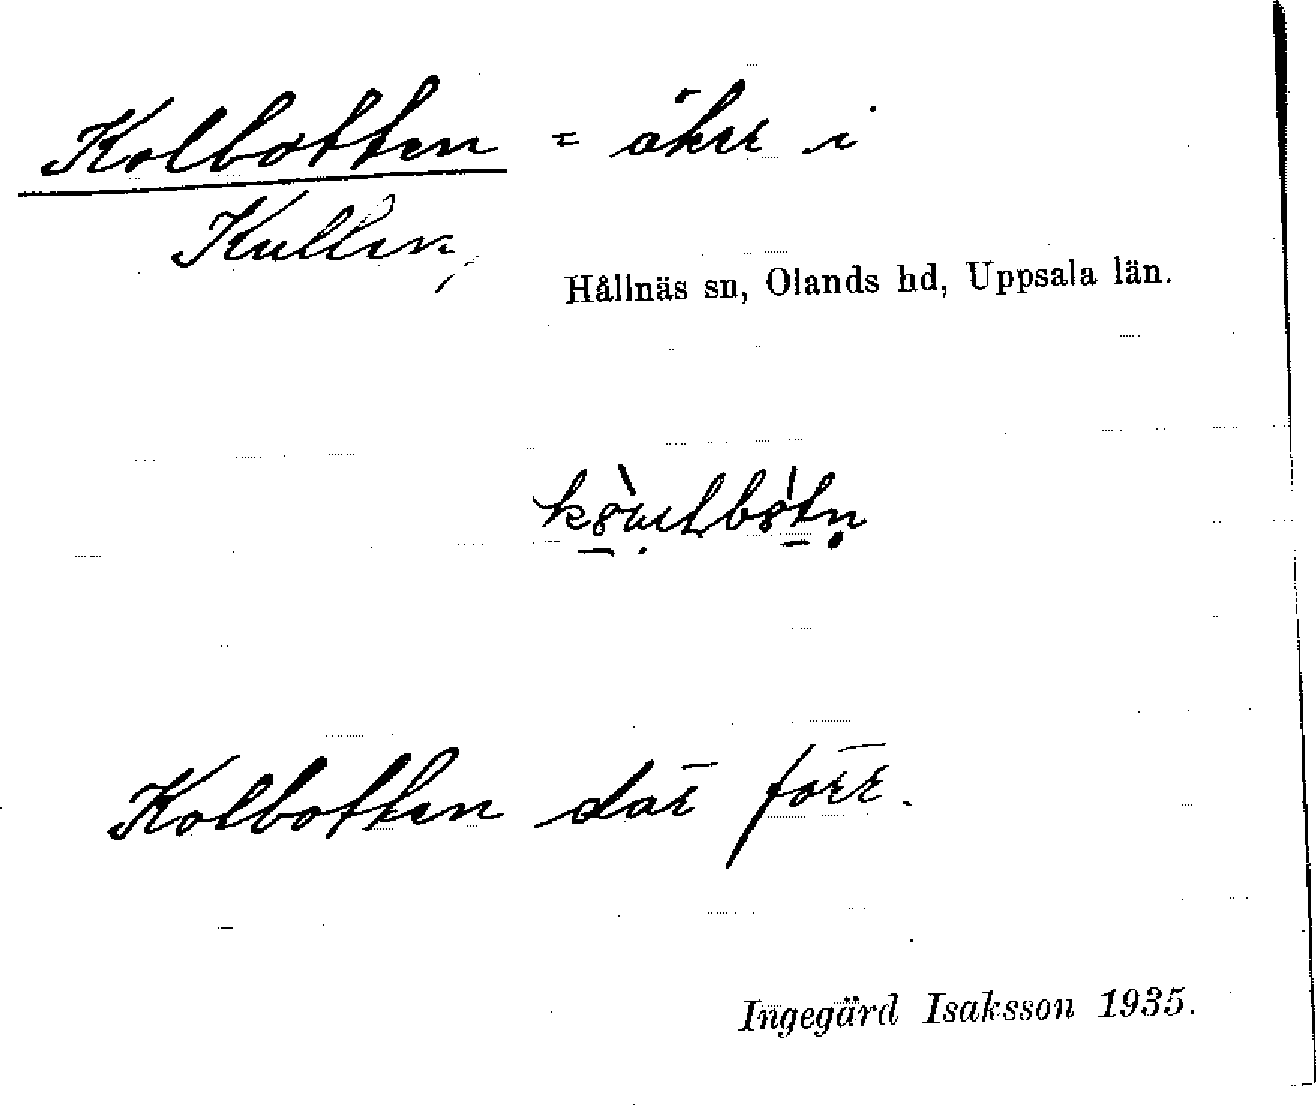 Kolbotten = åker i
Kullen,
Hållnäs sn, Olands hd, Uppsala län.
Kolbotten där förr.
Ingegärd Isaksson 1935.